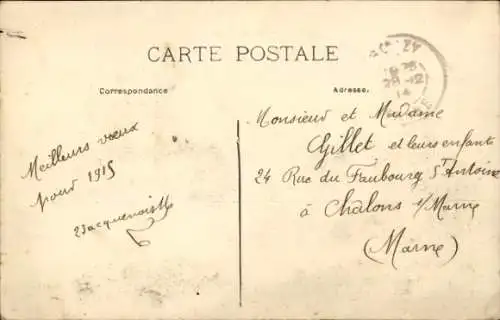 CARTE POSTALE
Correspondance
Adresse.
Meilleurs voeux
pour 1915
Monsieur et Madame
Gillet et leurs enfants
24 Rue du Faubourg St Antoine
à Châlons s/Marne
(Marne)
28-12
14